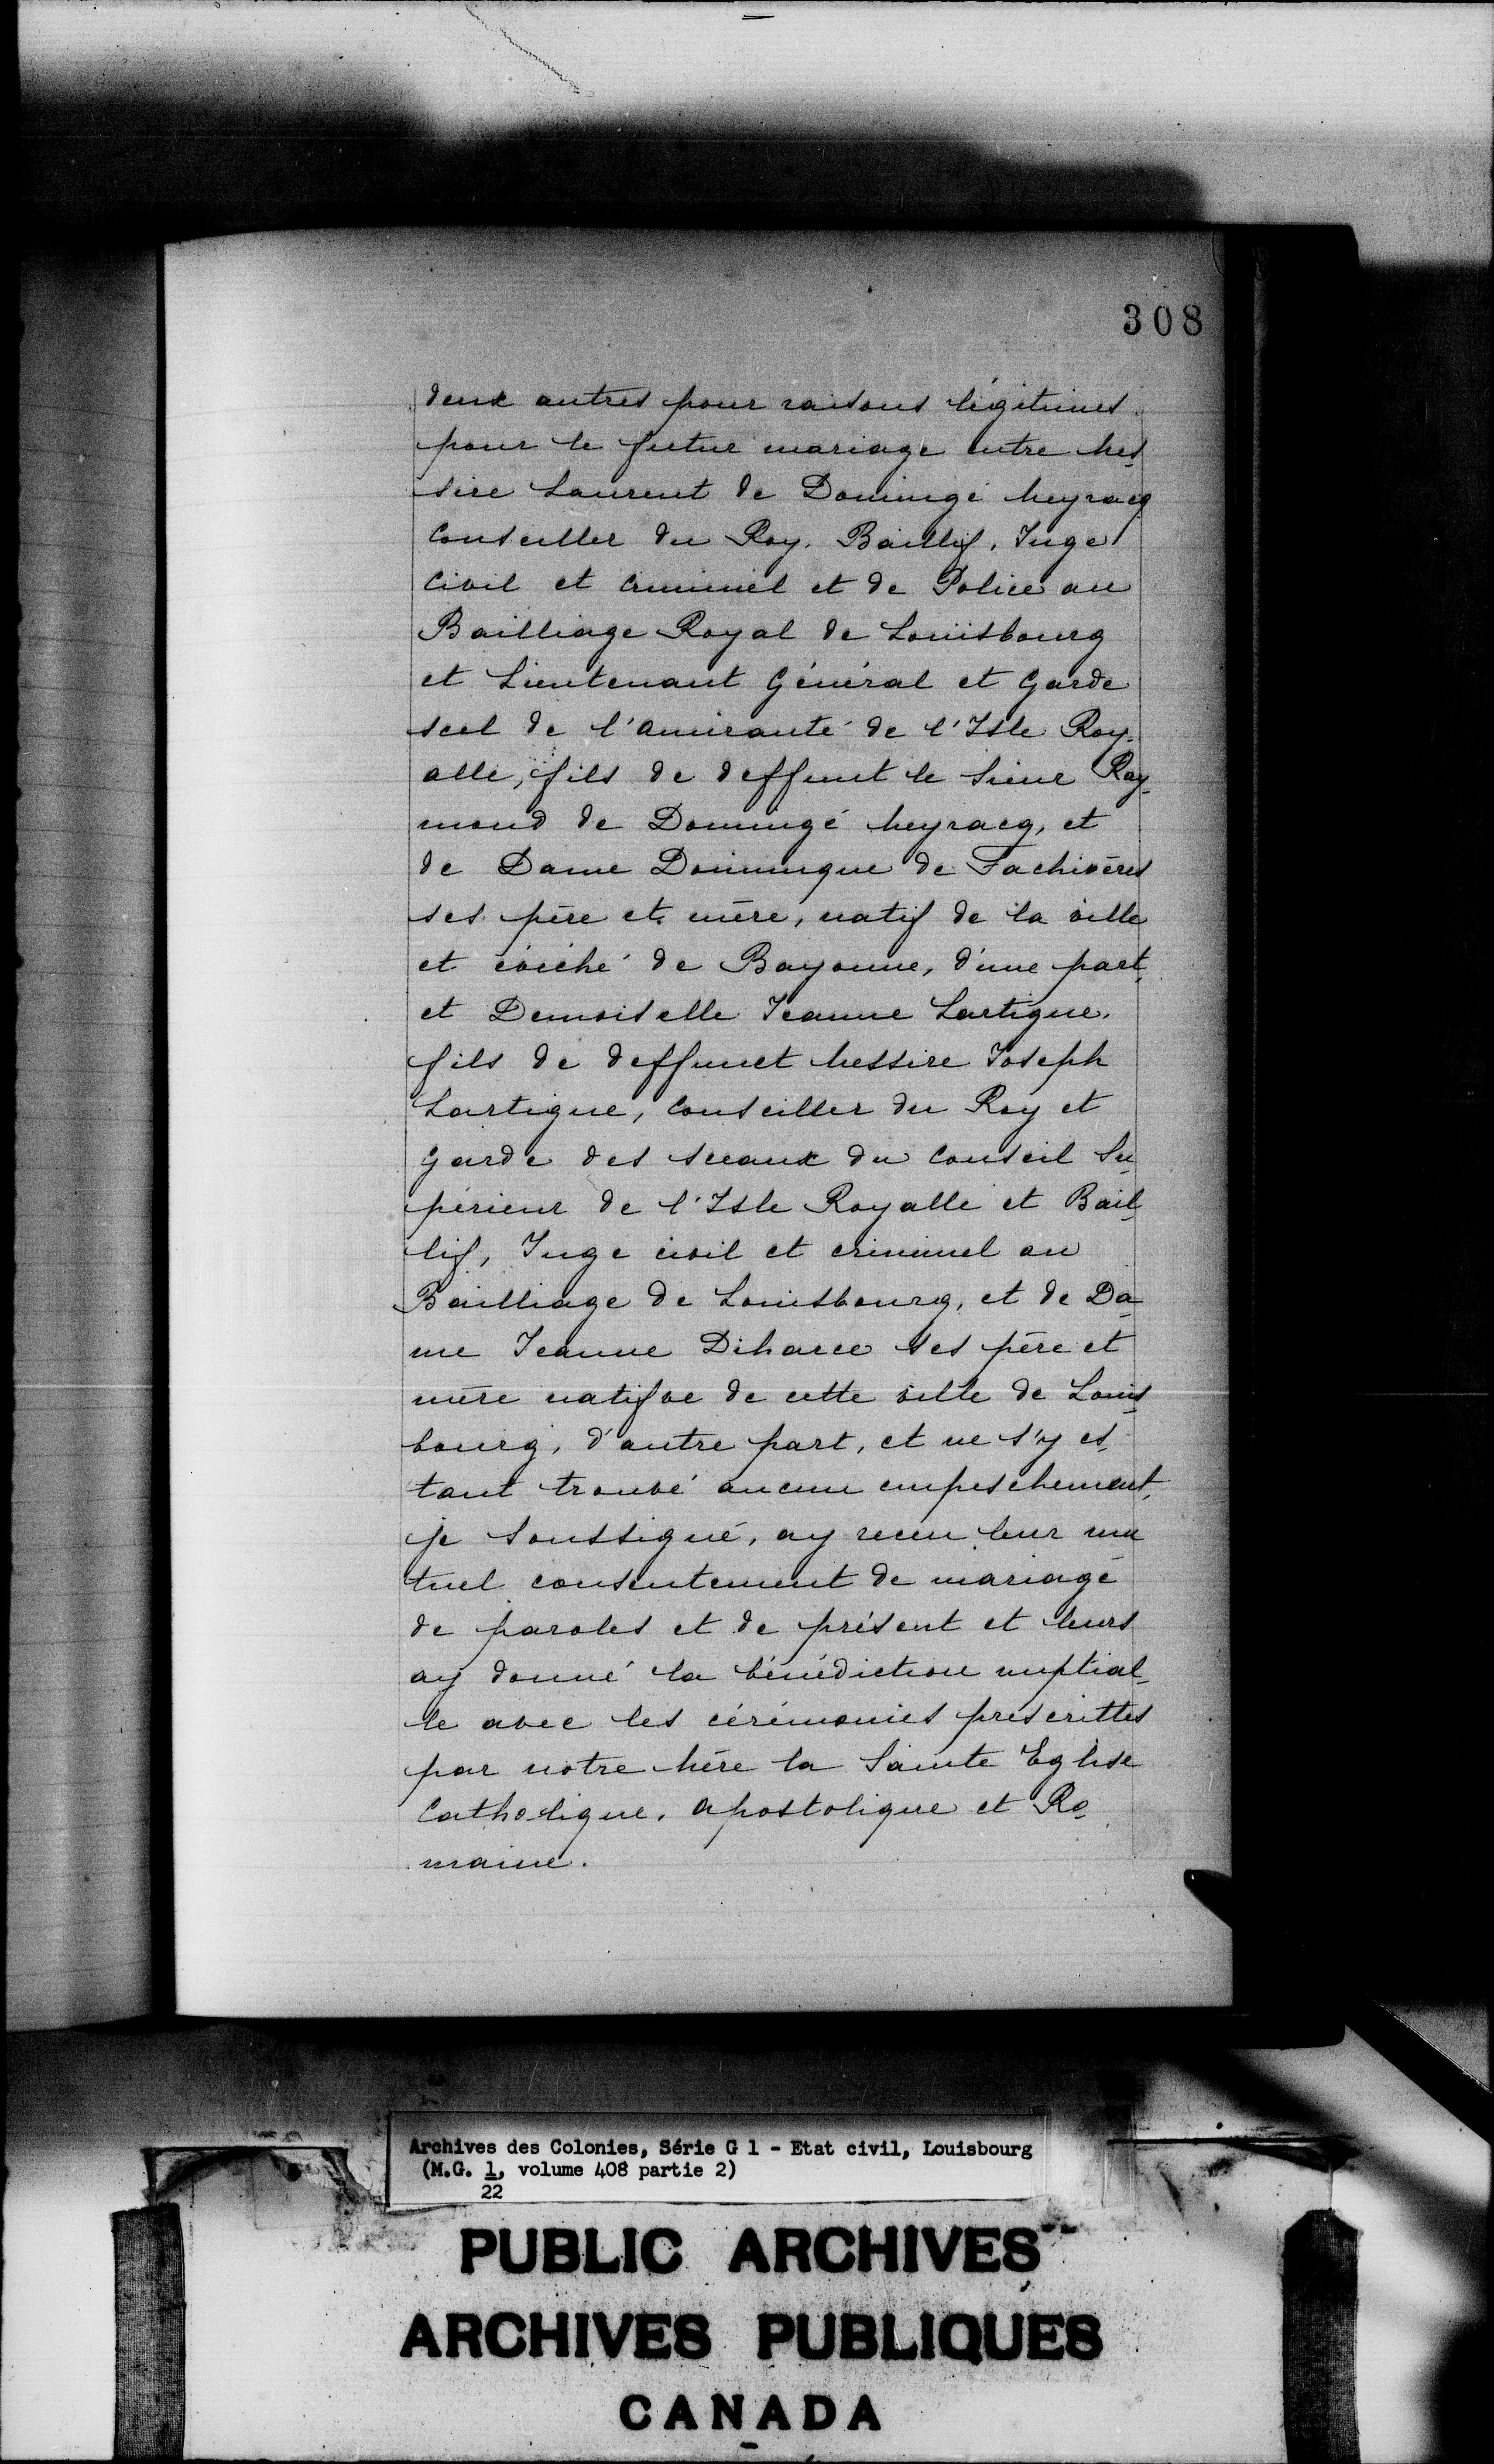 308
deux autres pour raisons légitimes
pour le futur mariage entre Mes
sire Laurent de Domingé Meyracq
Conseiller du Roy, Baillif, Juge
Civil et Criminel et de Police au
Bailliage Royal de Louisbourg
et Lieutenant Général et Garde
scel de l'amirauté de l'Isle Roy-
alle, fils de deffunt le Sieur Ray-
mond de Domingé Meyracq, et
de Dame Dominique de Fachivères
ses père et mère, natif de la ville
et évéché de Bayonne, d'une part,
et Demoiselle Jeanne Lartigue,
fils de deffunct Messire Joseph
Lartigue, Conseiller du Roy et
Garde des sceaux du Conseil Su-
périeur de l'Isle Royalle et Bail-
lif, Juge civil et criminel au
Bailliage de Louisbourg, et de Da-
me Jeanne Diharce ses père et
mère natifve de cette ville de Louis-
bourg, d'autre part, et ne s'y es-
tant trouvé aucun empeschement,
je soussigné, ay receu leur mu
tuel consentement de mariage
de paroles et de présent et leurs
ay donné la bénédiction nuptial-
le avec les cérémonies prescrittes
par notre Mère la Sainte Eglise
Catholique, apostolique et Ro-
maine.
Archives des Colonies, Série G 1 - Etat civil, Louisbourg
(M.G. 1, volume 408 partie 2)
22
PUBLIC ARCHIVES
ARCHIVES PUBLIQUES
CANADA